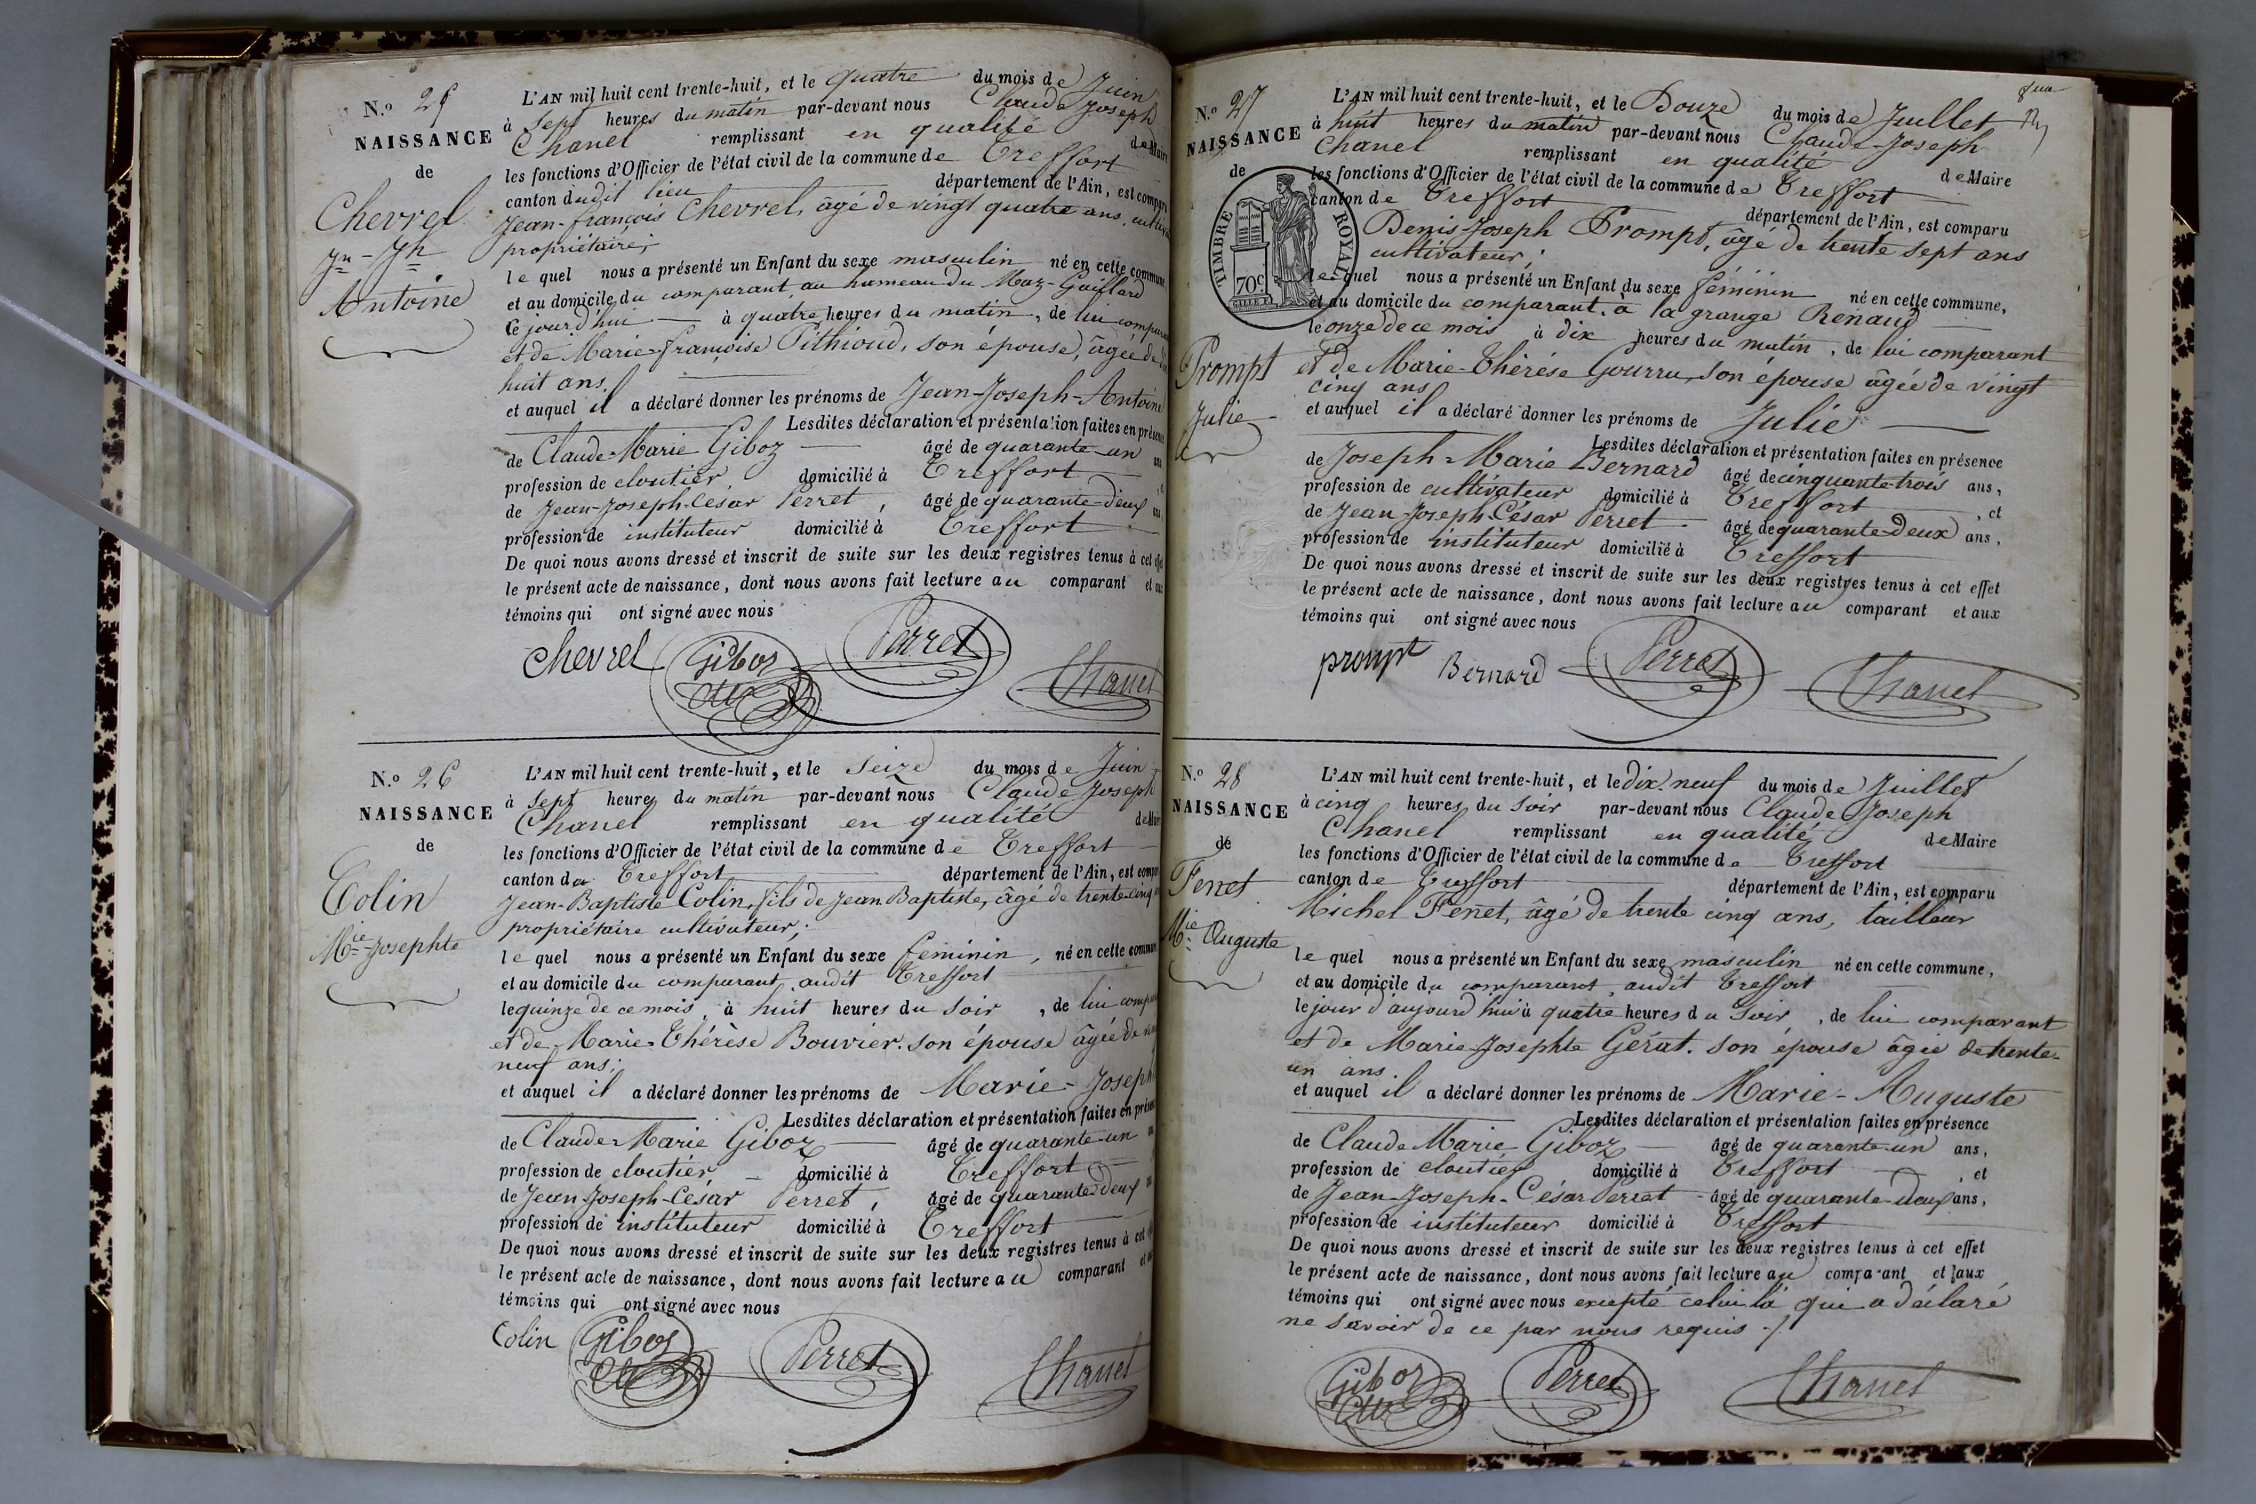 N.o 25
NAISSANCE
de
Chevrel
Jn-Jh
Antoine
L'AN mil huit cent trente-huit, et le quatre du mois de Juin
à sept heures du matin par-devant nous Claude Joseph
Chanel remplissant en qualité de Maire
les fonctions d'Officier de l'état civil de la commune de Treffort
canton dudit lieu département de l'Ain, est comparu
Jean-françois Chevrel, âgé de vingt quatre ans,
propriétaire;
lequel nous a présenté un Enfant du sexe masculin né en cette commune
et au domicile du comparant, au hameau du Maz-Gaillard
Ce jourd'hui à quatre heures du matin, de lui
et de Marie-françoise Pithioud, son épouse, âgée de
huit ans.
et auquel il a déclaré donner les prénoms de Jean-Joseph-Antoine
Lesdites déclaration et présentation faites en présence
de Claude-Marie Giboz âgé de quarante-un
profession de cloutier, domicilié à Treffort
de Jean-Joseph-César Perret, âgé de quarante-deux
profession de instituteur domicilié à Treffort
De quoi nous avons dressé et inscrit de suite sur les deux registres tenus à cet effet
le présent acte de naissance, dont nous avons fait lecture au comparant et aux
témoins qui ont signé avec nous
Chevrel Giboz Perret Chanel
N.o 26
NAISSANCE
de
Colin
Mie-Josephte
L'AN mil huit cent trente-huit, et le seize du mois de Juin
à sept heures du matin par-devant nous Claude Joseph
Chanel remplissant en qualité de Maire
les fonctions d'Officier de l'état civil de la commune de Treffort
canton de Treffort département de l'Ain, est
Jean-Baptiste Colin, fils de Jean Baptiste, âgé de trente-cinq
propriétaire cultivateur;
lequel nous a présenté un Enfant du sexe féminin, né en cette commune
et au domicile du comparant, audit Treffort
le quinze de ce mois, à huit heures du soir, de lui
et de Marie-Thérèse Bouvier, son épouse âgée de
neuf ans;
et auquel il a déclaré donner les prénoms de Marie-Joseph
Lesdites déclaration et présentation faites en
de Claude-Marie Giboz âgé de quarante-un
profession de cloutier domicilié à Treffort
de Jean-Joseph-César Perret, âgé de quarante-deux
profession de instituteur domicilié à Treffort
De quoi nous avons dressé et inscrit de suite sur les deux registres tenus à cet
le présent acte de naissance, dont nous avons fait lecture au comparant
témoins qui ont signé avec nous
Colin Giboz Perret Chanel
N.o 27
NAISSANCE
de
TIMBRE ROYAL
70c
Prompt
Julie
L'AN mil huit cent trente-huit, et le Douze du mois de Juillet
à huit heures du matin par-devant nous Claude-Joseph
Chanel remplissant en qualité de Maire
les fonctions d'Officier de l'état civil de la commune de Treffort
canton de Treffort département de l'Ain, est comparu
Denis Joseph Prompt, âgé de trente sept ans
cultivateur;
lequel nous a présenté un Enfant du sexe féminin né en cette commune,
et au domicile du comparant, à la grange Renaud
le onze de ce mois à dix heures du matin, de lui comparant
et de Marie-Thérèse Gourru, son épouse âgée de vingt
cinq ans
et auquel il a déclaré donner les prénoms de Julie
Lesdites déclaration et présentation faites en présence
de Joseph-Marie Bernard âgé de cinquante-trois ans,
profession de cultivateur domicilié à Treffort, et
de Jean-Joseph-César Perret âgé de quarante-deux ans,
profession de instituteur domicilié à Treffort
De quoi nous avons dressé et inscrit de suite sur les deux registres tenus à cet effet
le présent acte de naissance, dont nous avons fait lecture au comparant et aux
témoins qui ont signé avec nous
prompt Bernard Perret Chanel
N.o 28
NAISSANCE
de
Fenet
Mie Auguste
L'AN mil huit cent trente-huit, et le dix-neuf du mois de Juillet
à cinq heures du soir par-devant nous Claude Joseph
Chanel remplissant en qualité de Maire
les fonctions d'Officier de l'état civil de la commune de Treffort
canton de Treffort département de l'Ain, est comparu
Michel Fenet, âgé de trente cinq ans, tailleur
lequel nous a présenté un Enfant du sexe masculin né en cette commune,
et au domicile du comparant, audit Treffort
le jour d'aujourd'hui à quatre heures du soir, de lui comparant
et de Marie-Josephte Gérat, son épouse âgée de trente-
un ans.
et auquel il a déclaré donner les prénoms de Marie-Auguste
Lesdites déclaration et présentation faites en présence
de Claude-Marie Giboz âgé de quarante-un ans,
profession de cloutier domicilié à Treffort, et
de Jean-Joseph-César Perret âgé de quarante-deux ans,
profession de instituteur domicilié à Treffort
De quoi nous avons dressé et inscrit de suite sur les deux registres tenus à cet effet
le présent acte de naissance, dont nous avons fait lecture au comparant et aux
témoins qui ont signé avec nous excepté celui-là qui a déclaré
ne savoir de ce par nous requis ./.
Giboz Perret Chanel